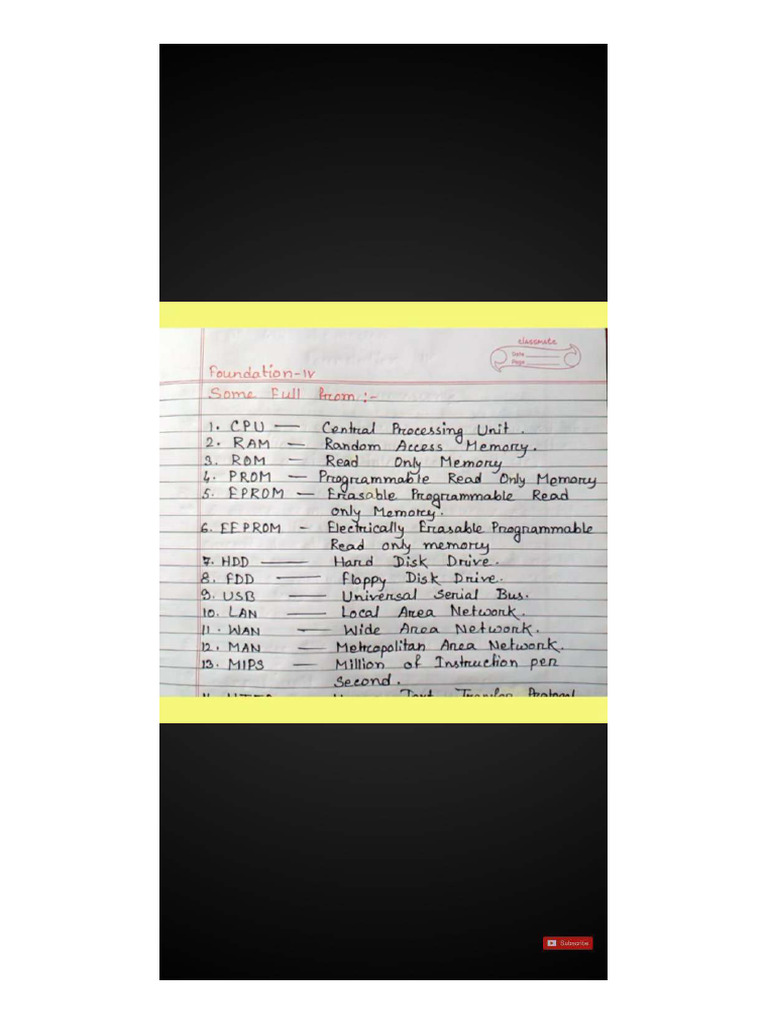 classmate
Date
Page
Foundation-IV
Some Full From :-
1. CPU — Central Processing Unit .
2. RAM — Random Access Memory.
3. ROM — Read Only Memory
4. PROM — Programmable Read Only Memory
5. EPROM — Erasable Programmable Read
only Memory.
6. EEPROM - Electrically Erasable Programmable
Read only memory
7. HDD — Hard Disk Drive.
8. FDD — Floppy Disk Drive.
9. USB — Universal Serial Bus.
10. LAN — Local Area Network.
11. WAN — Wide Area Network.
12. MAN — Metropolitan Area Network.
13. MIPS — Million of Instruction per
Second.
Text Transfer Protocol
Subscribe